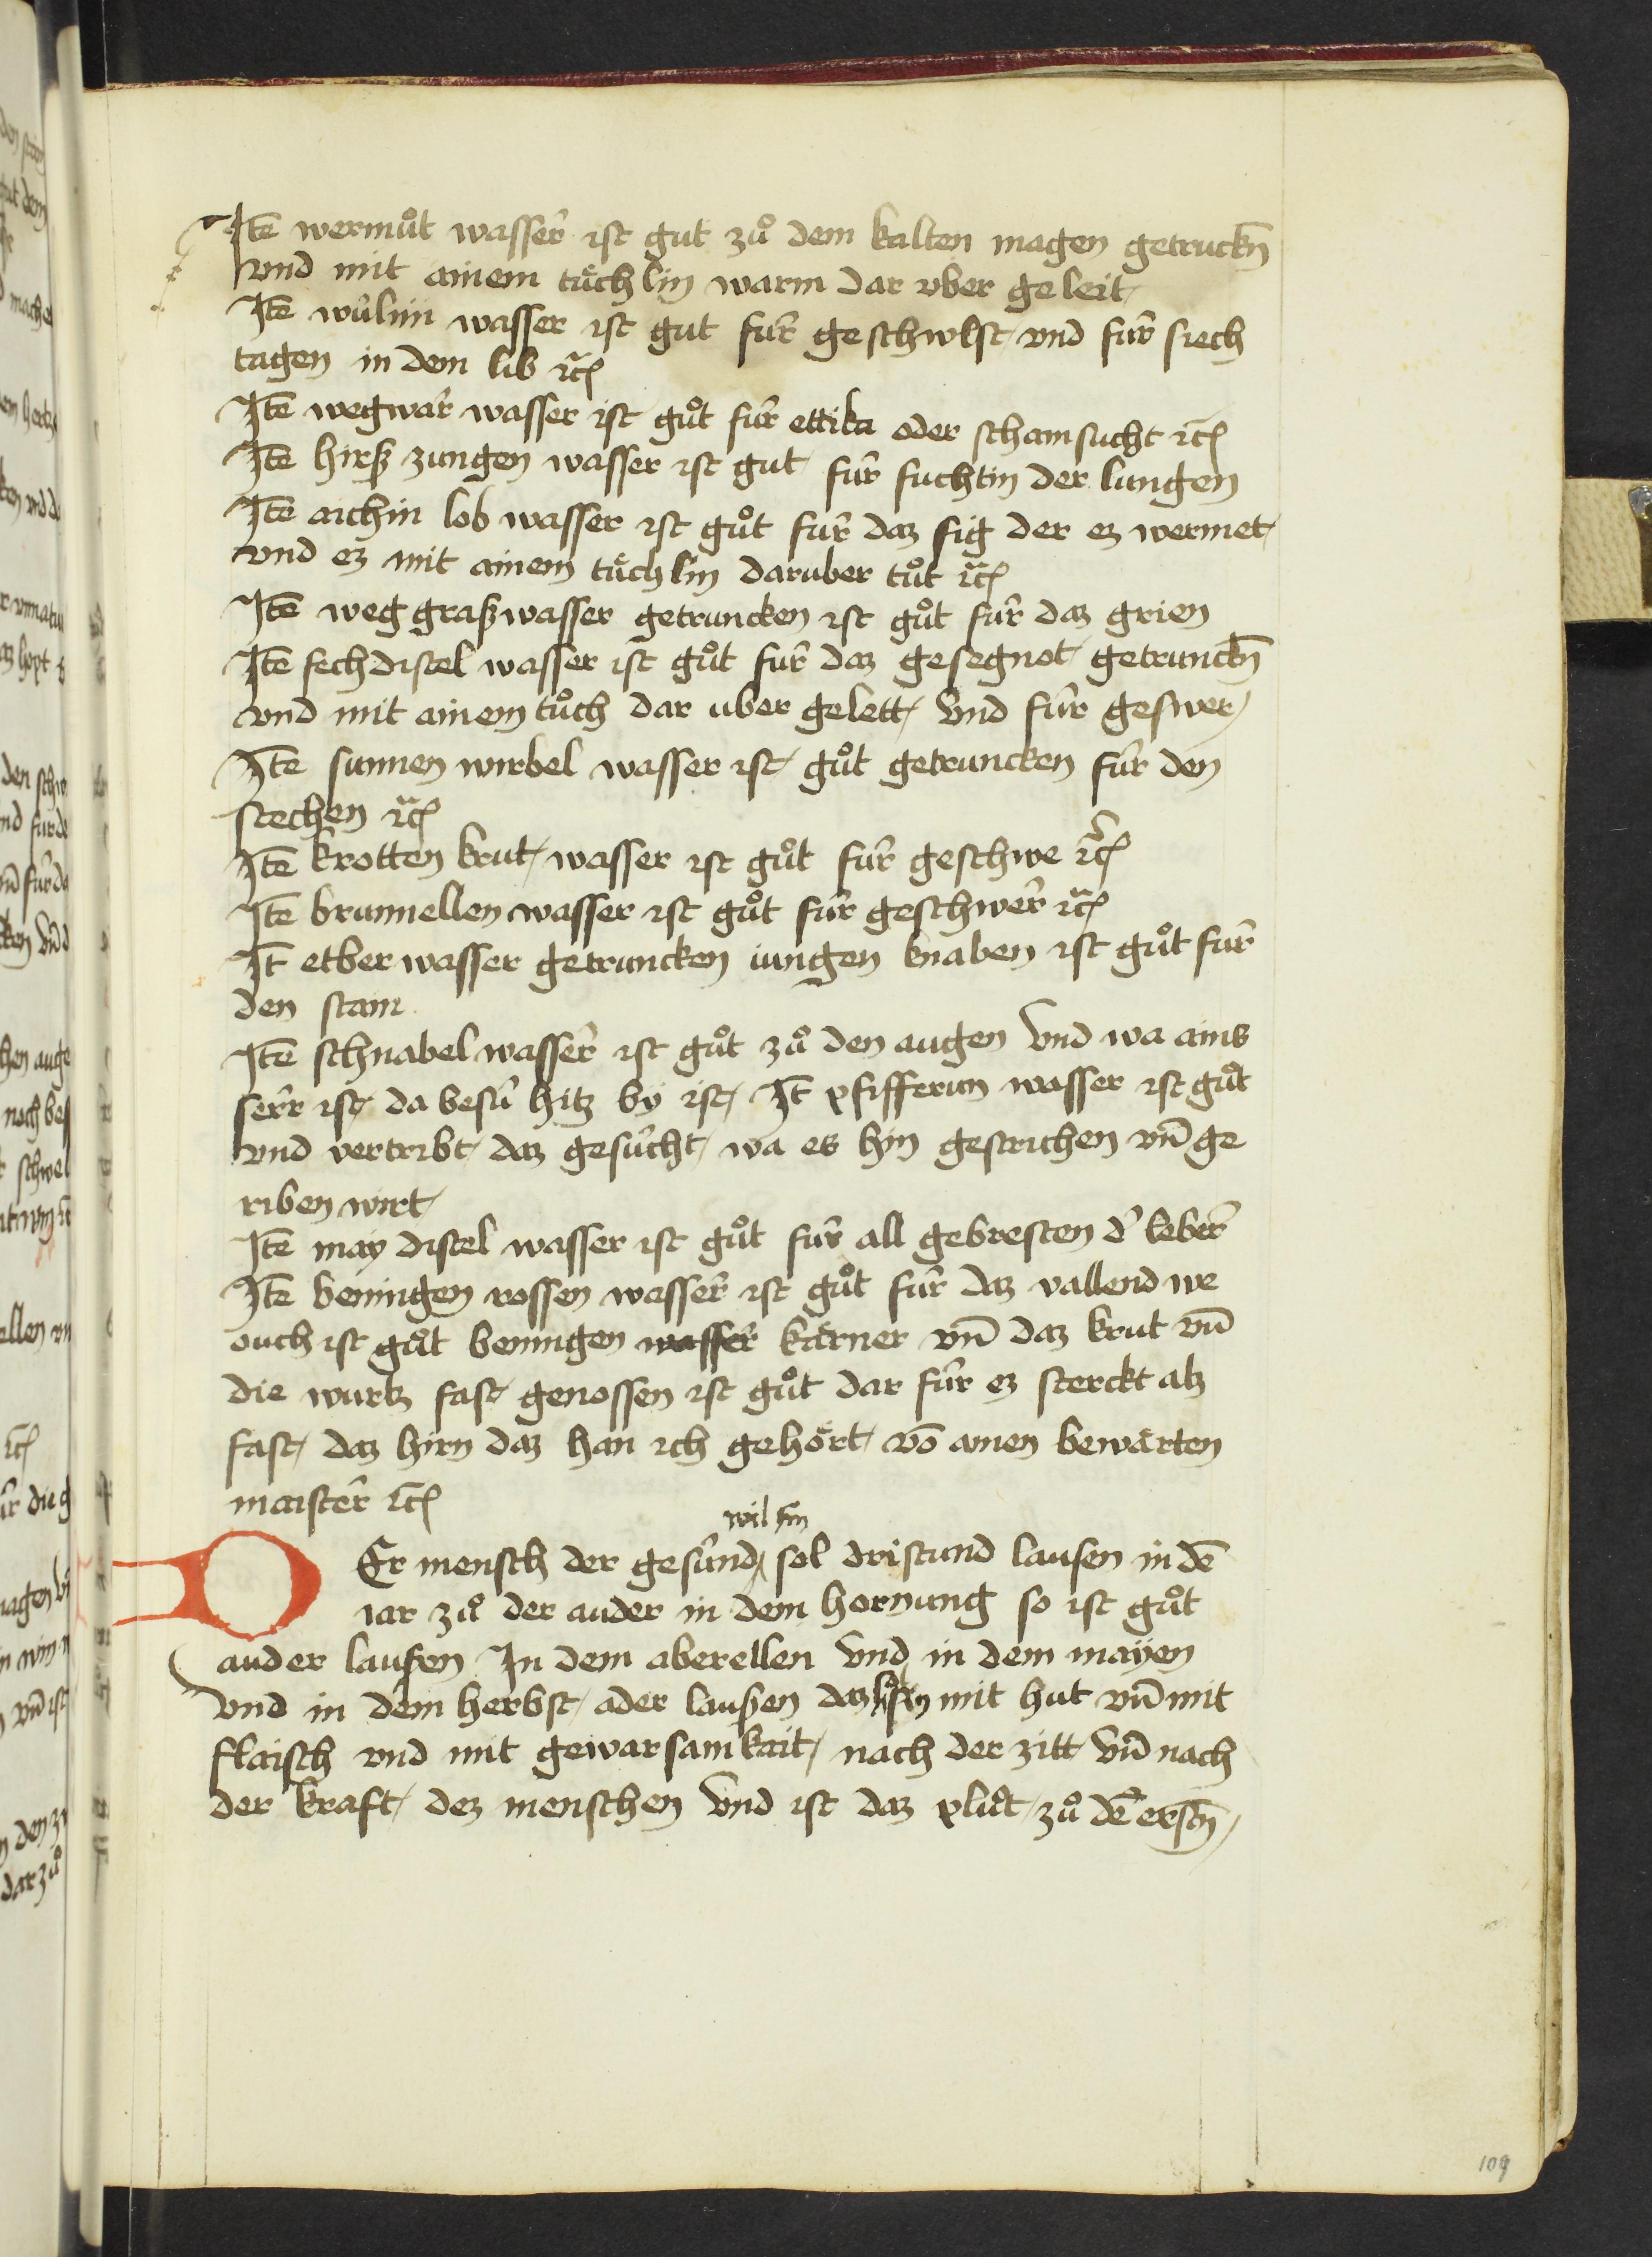 Itē wermuͦt wasser ist gut zuͦ dem kalten magen getruckn̄
vnd mit ainem tuͤchlin warm dar vber geleit
Itē wulini wasser ist gut fur geschwlst vnd fur siech
tagen in dem lib ꝛcͣ
Itē wegwar wasser ist guͦt fur ettika oder schainsucht ꝛc
Itē hirß zungen wasser ist gut fur fuchtin der lungen
Itē aichin lob wasser ist guͦt fur daz fig der ez wermet
vnd ez mit ainem tuͤchlin daruber tuͦt ꝛcͣ
Itē weggraßwasser getruncken ist guͦt fur daz grien
Itē fechdistel wasser ist guͦt fur daz gesegnot getrunckn̄
vnd mit ainem tuͦch dar uber gelett vnd fur geswer
Itē sunnen wirbel wasser ist guͦt getruncken fur den
stechen ꝛcͣ
Itē krotten krut wasser ist guͦt fur geschwe ꝛcͣ
Itē brunnellen wasser ist guͦt fur geschwer ꝛcͣ
It̄ etber wasser getruncken iungen knaben ist guͦt fur
den stain
Itē schnabel wasser ist guͦt zuͦ den augen vnd wa ains
serr ist da besu᷑ hitz by ist It̄ pfifferim wasser ist guͦt
vnd vertribt daz gesucht wa es hin gestrichen vn̄ ge
riben wirt
Itē may distel wasser ist guͦt fur all gebresten d᷑ leber
Itē beningen rossen wasser ist guͦt fur daz vallend we
ouch ist guͦt beningen wasser kaͤrner vn̄ daz krut vn̄
die wurtz fast genossen ist guͦt dar fur ez sterckt alz
fast daz hirn daz han ich gehoͤrt vō ainen bewaͤrten
maister ꝛc
wil sin
DEr mensch der gesund sol dristund lausen in dē
iar zuͦ der auder in dem hornung so ist guͦt
auder lausen In dem aberellen vnd in dem mayen
vnd in dem herbst ader laußen daz sy mit hut vn̄ mit
flaisch vnd mit gewarsamkait nach der zitt vn̄ nach
der kraft dez menschen vnd ist daz pluͦt zuͦ dē erstn̄
109